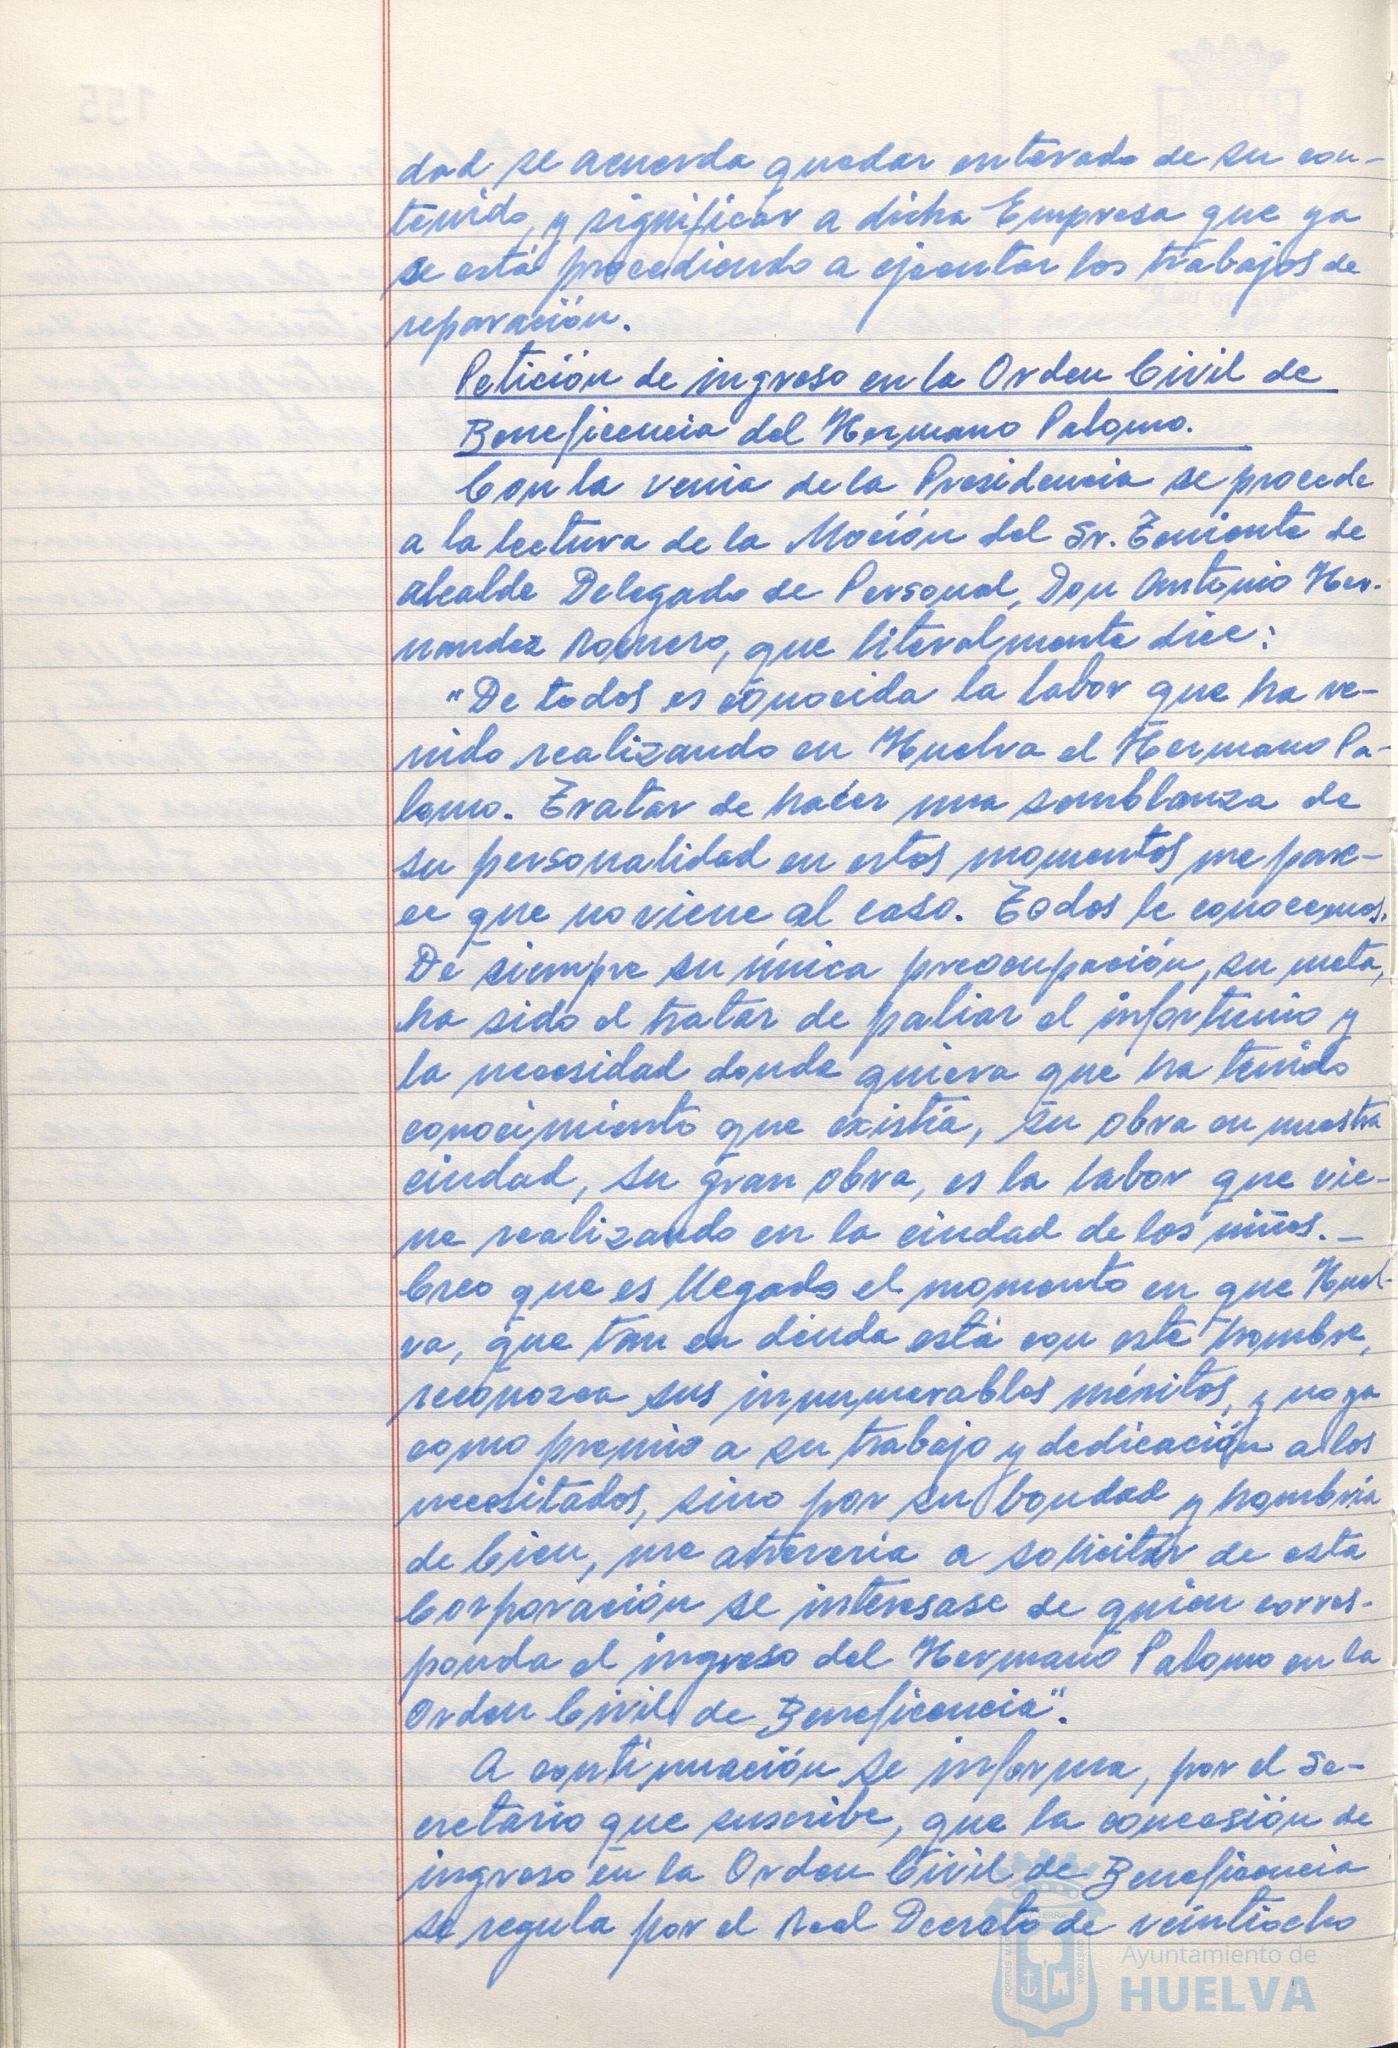 dad se acuerda quedar enterado de su con-
tenido, y significar a dicha Empresa que ya
se está procediendo a ejecutar los trabajos de
reparación.
Petición de ingreso en la Orden Civil de
Beneficencia del Hermano Palomo.
Con la venia de la Presidencia se procede
a la lectura de la Moción del Sr. Teniente de
alcalde Delegado de Personal, Don Antonio Her-
nandez Romero, que literalmente dice:
"De todos es conocida la labor que ha ve-
nido realizando en Huelva el Hermano Pa-
lomo. Tratar de hacer una semblanza de
su personalidad en estos momentos me pare-
ce que no viene al caso. Todos le conocemos.
De siempre su única preocupación, su meta,
ha sido el tratar de paliar el infortunio y
la necesidad donde quiera que ha tenido
conocimiento que existía, su obra en nuestra
ciudad, su gran obra, es la labor que vie-
ne realizando en la ciudad de los niños.-
Creo que es llegado el momento en que Huel-
va, que tan en deuda está con este hombre,
reconozca sus innumerables méritos, y no ya
como premio a su trabajo y dedicación a los
necesitados, sino por su bondad y hombría
de bien, me atrevería a solicitar de esta
Corporación se interesase de quien corres-
ponda el ingreso del Hermano Palomo en la
Orden Civil de Beneficencia".
A continuación se informa, por el Se-
cretario que suscribe, que la concesión de
ingreso en la Orden Civil de Beneficencia
se regula por el Real Decreto de veintiocho
Ayuntamiento de
HUELVA